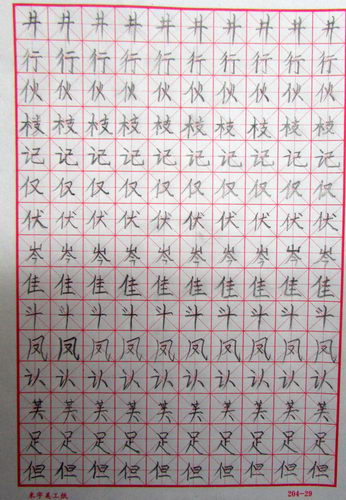 井井井井井井井井井井
行行行行行行行行行行
伙伙伙伙伙伙伙伙伙伙
枝枝枝枝枝枝枝枝枝枝
记记记记记记记记记记
仅仅仅仅仅仅仅仅仅仅
伏伏伏伏伏伏伏伏伏伏
岑岑岑岑岑岑岑岑岑岑
佳佳佳佳佳佳佳佳佳佳
斗斗斗斗斗斗斗斗斗斗
凤凤凤凤凤凤凤凤凤凤
认认认认认认认认认认
芙芙芙芙芙芙芙芙芙芙
足足足足足足足足足足
但但但但但但但但但但
米字美工纸 204-29